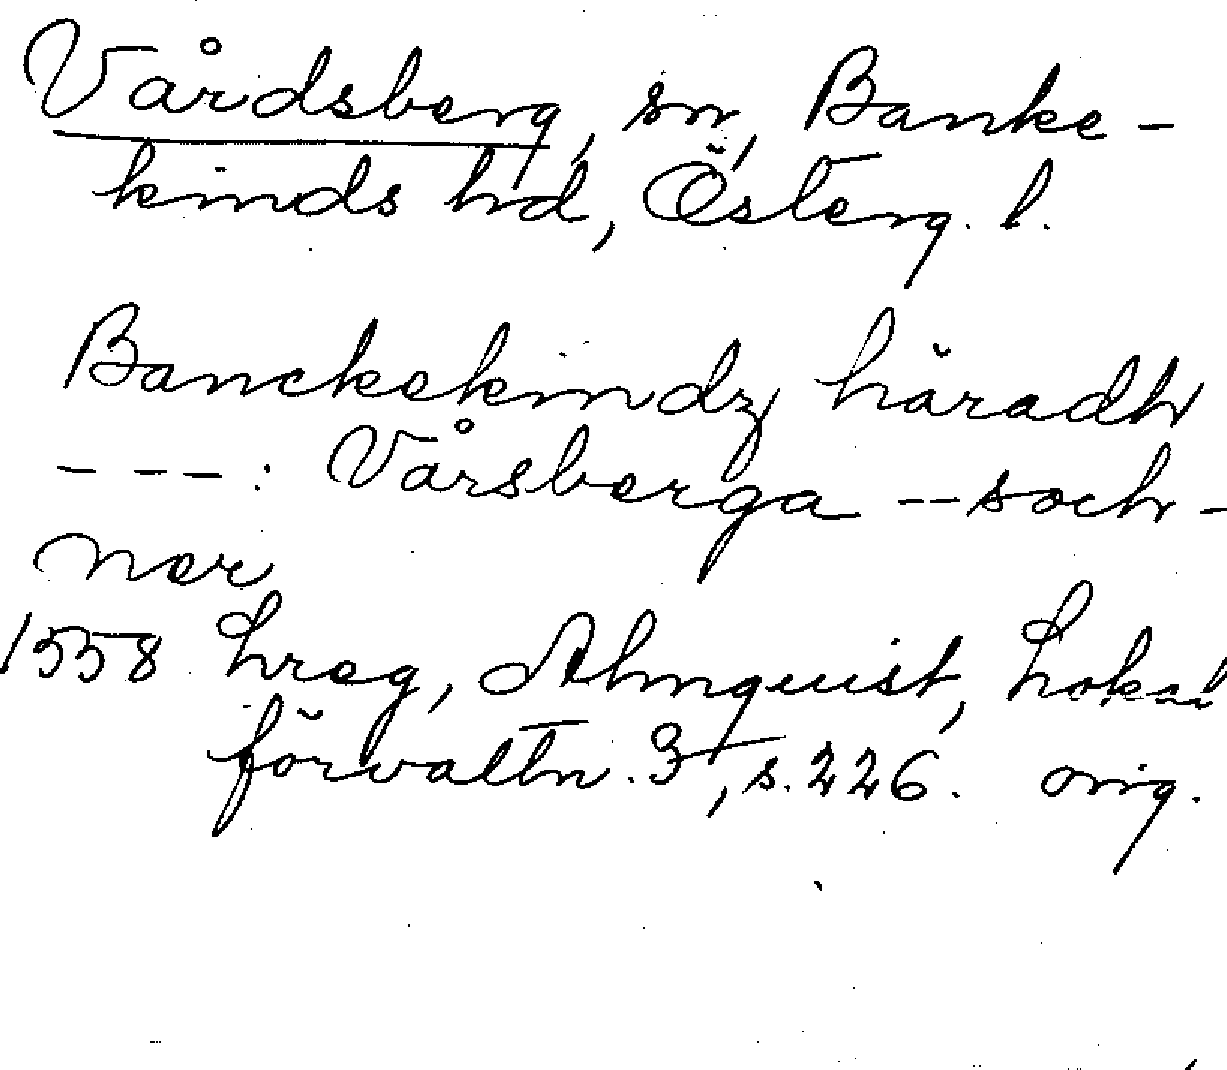 Vårdsberg, sn, Banke-
kinds hd, Österg. l.
Banckekindz häradh
---: Vårsberga -- soch-
ner
1558 Lreg, Almquist, Lokal
förvaltn. 3, s. 226. orig.